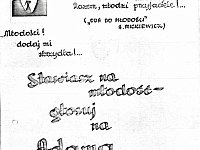 Razem, młodzi przyjaciele!...
("ODA DO MŁODOŚCI"
A. MICKIEWICZ)
„Młodości!
dodaj mi
skrzydła!...
Stawiasz na
młodość –
głosuj
na
Adama